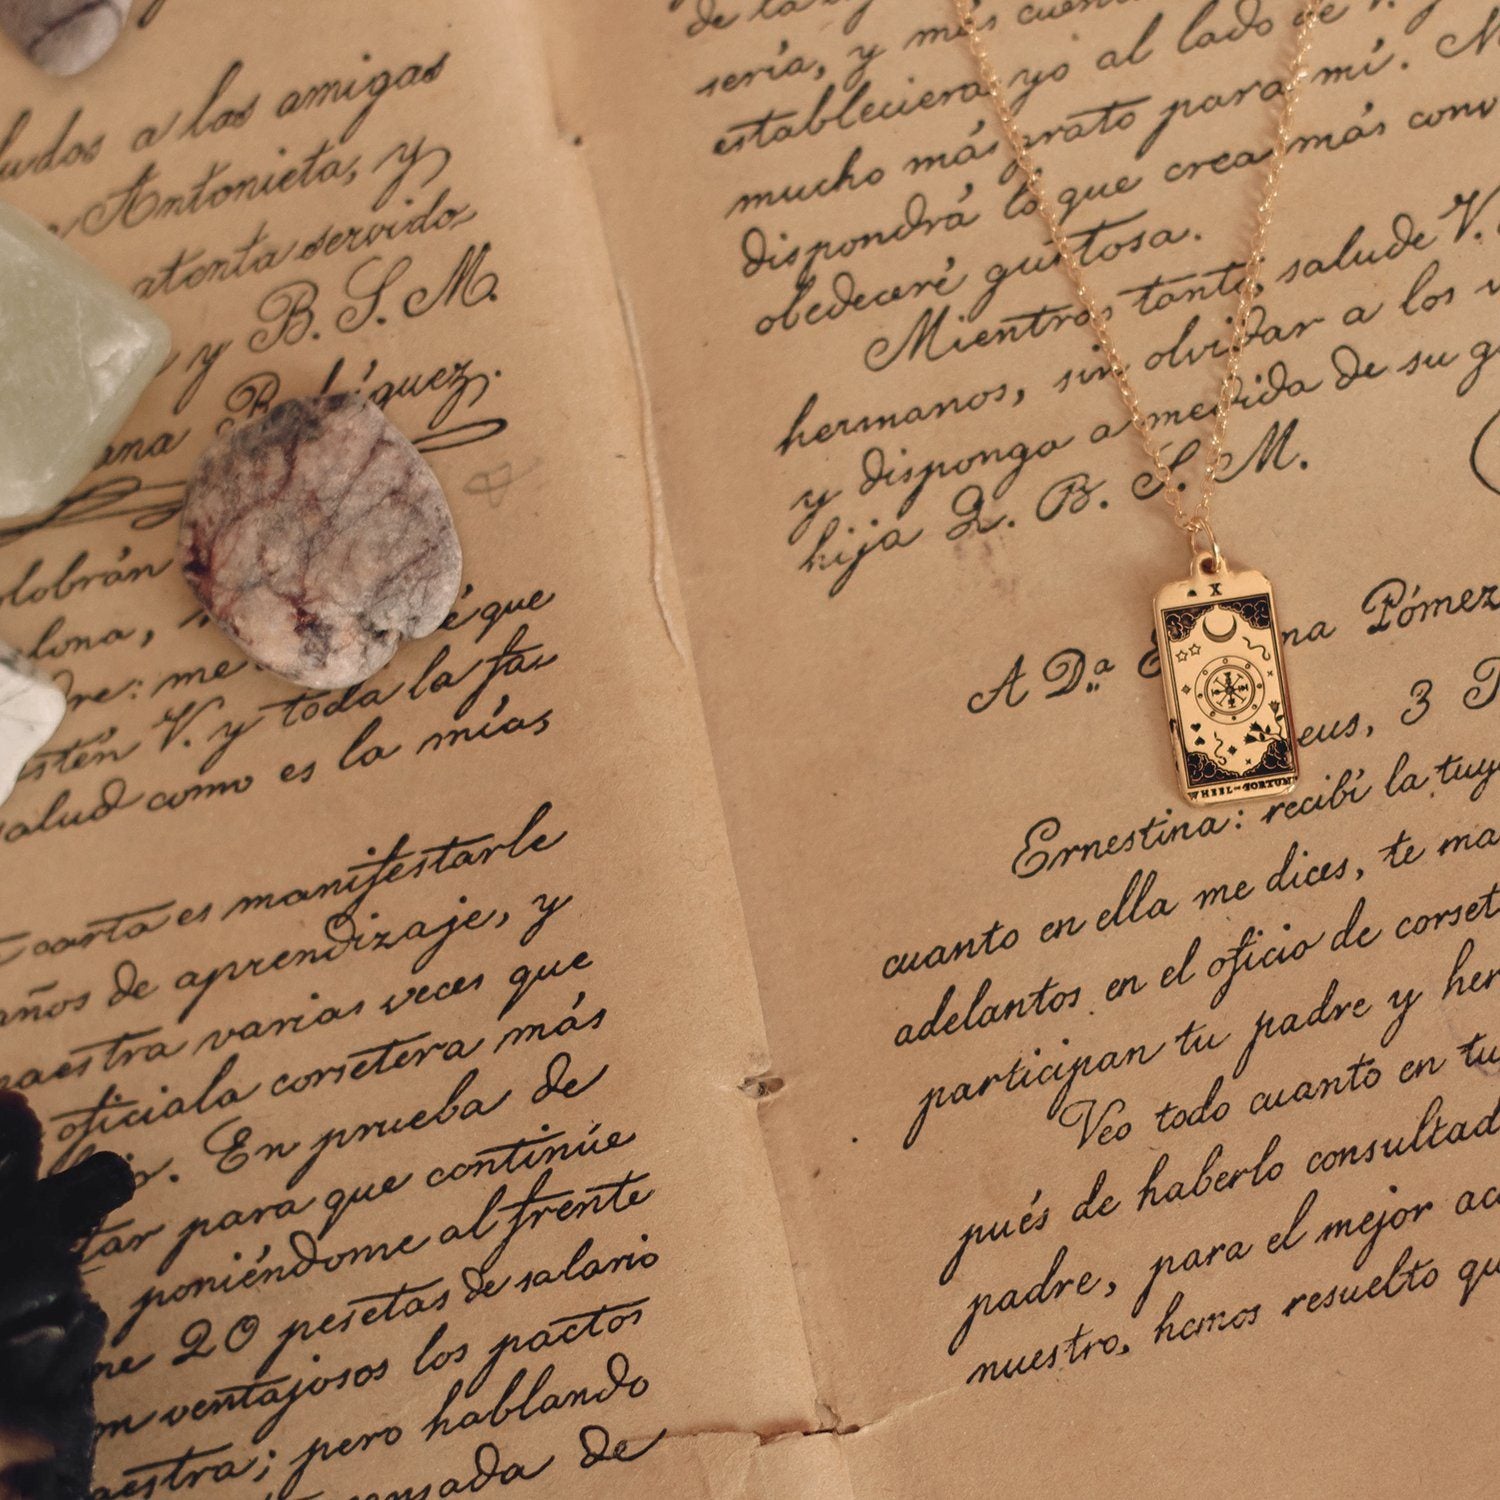 a las amigas
Antonieta, y
atenta servido
y B. S. M.
olobrán
que
dre: me
estén V. y toda la fa
salud como es la mías
carta es manifestarle
años de aprendizaje, y
maestra varias veces que
oficiala corsetera más
En prueba de
para que continúe
poniéndome al frente
20 pesetas de salario
ventajosos los pactos
pero hablando
de
sería, y más
estableciera yo al lado de V.
mucho más grato para mí.
dispondrá lo que crea más conv
obedeceré gustosa.
Mientras tanto, salude V.
hermanos, sin olvidar a los
y disponga a medida de su
hija Q. B. S. M.
A D.a Pómez
eus, 3
Ernestina: recibí la tuy
cuanto en ella me dices, te ma
adelantos en el oficio de corset
participan tu padre y her
Veo todo cuanto en tu
pués de haberlo consultad
padre, para el mejor ac
nuestro, hemos resuelto qu
X
WHEEL of FORTUNE